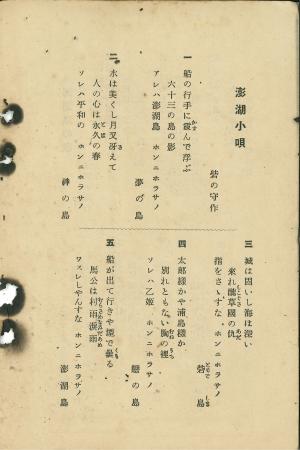 澎湖小唄
砦の守作
一 船の行手に霞んで浮ぶ
六十三の島の影
アレハ澎湖島 ホンニホラサノ
夢の島
二 水は美くし月又冴えて
人の心は永久の春
ソレハ平和の ホンニホラサノ
神の島
三 城は固いし海は深い
来れ 國の仇
指をさいすな ホンニホラサノ
砦島
四 太郎様かや浦島様か
別れともない胸の裡
ソレハ乙姫 ホンニホラサノ
戀の島
五 船が出て行きや煙で曇る
馬公は 雨 雨
ワスレしやんすな ホンニホラサノ
澎湖島